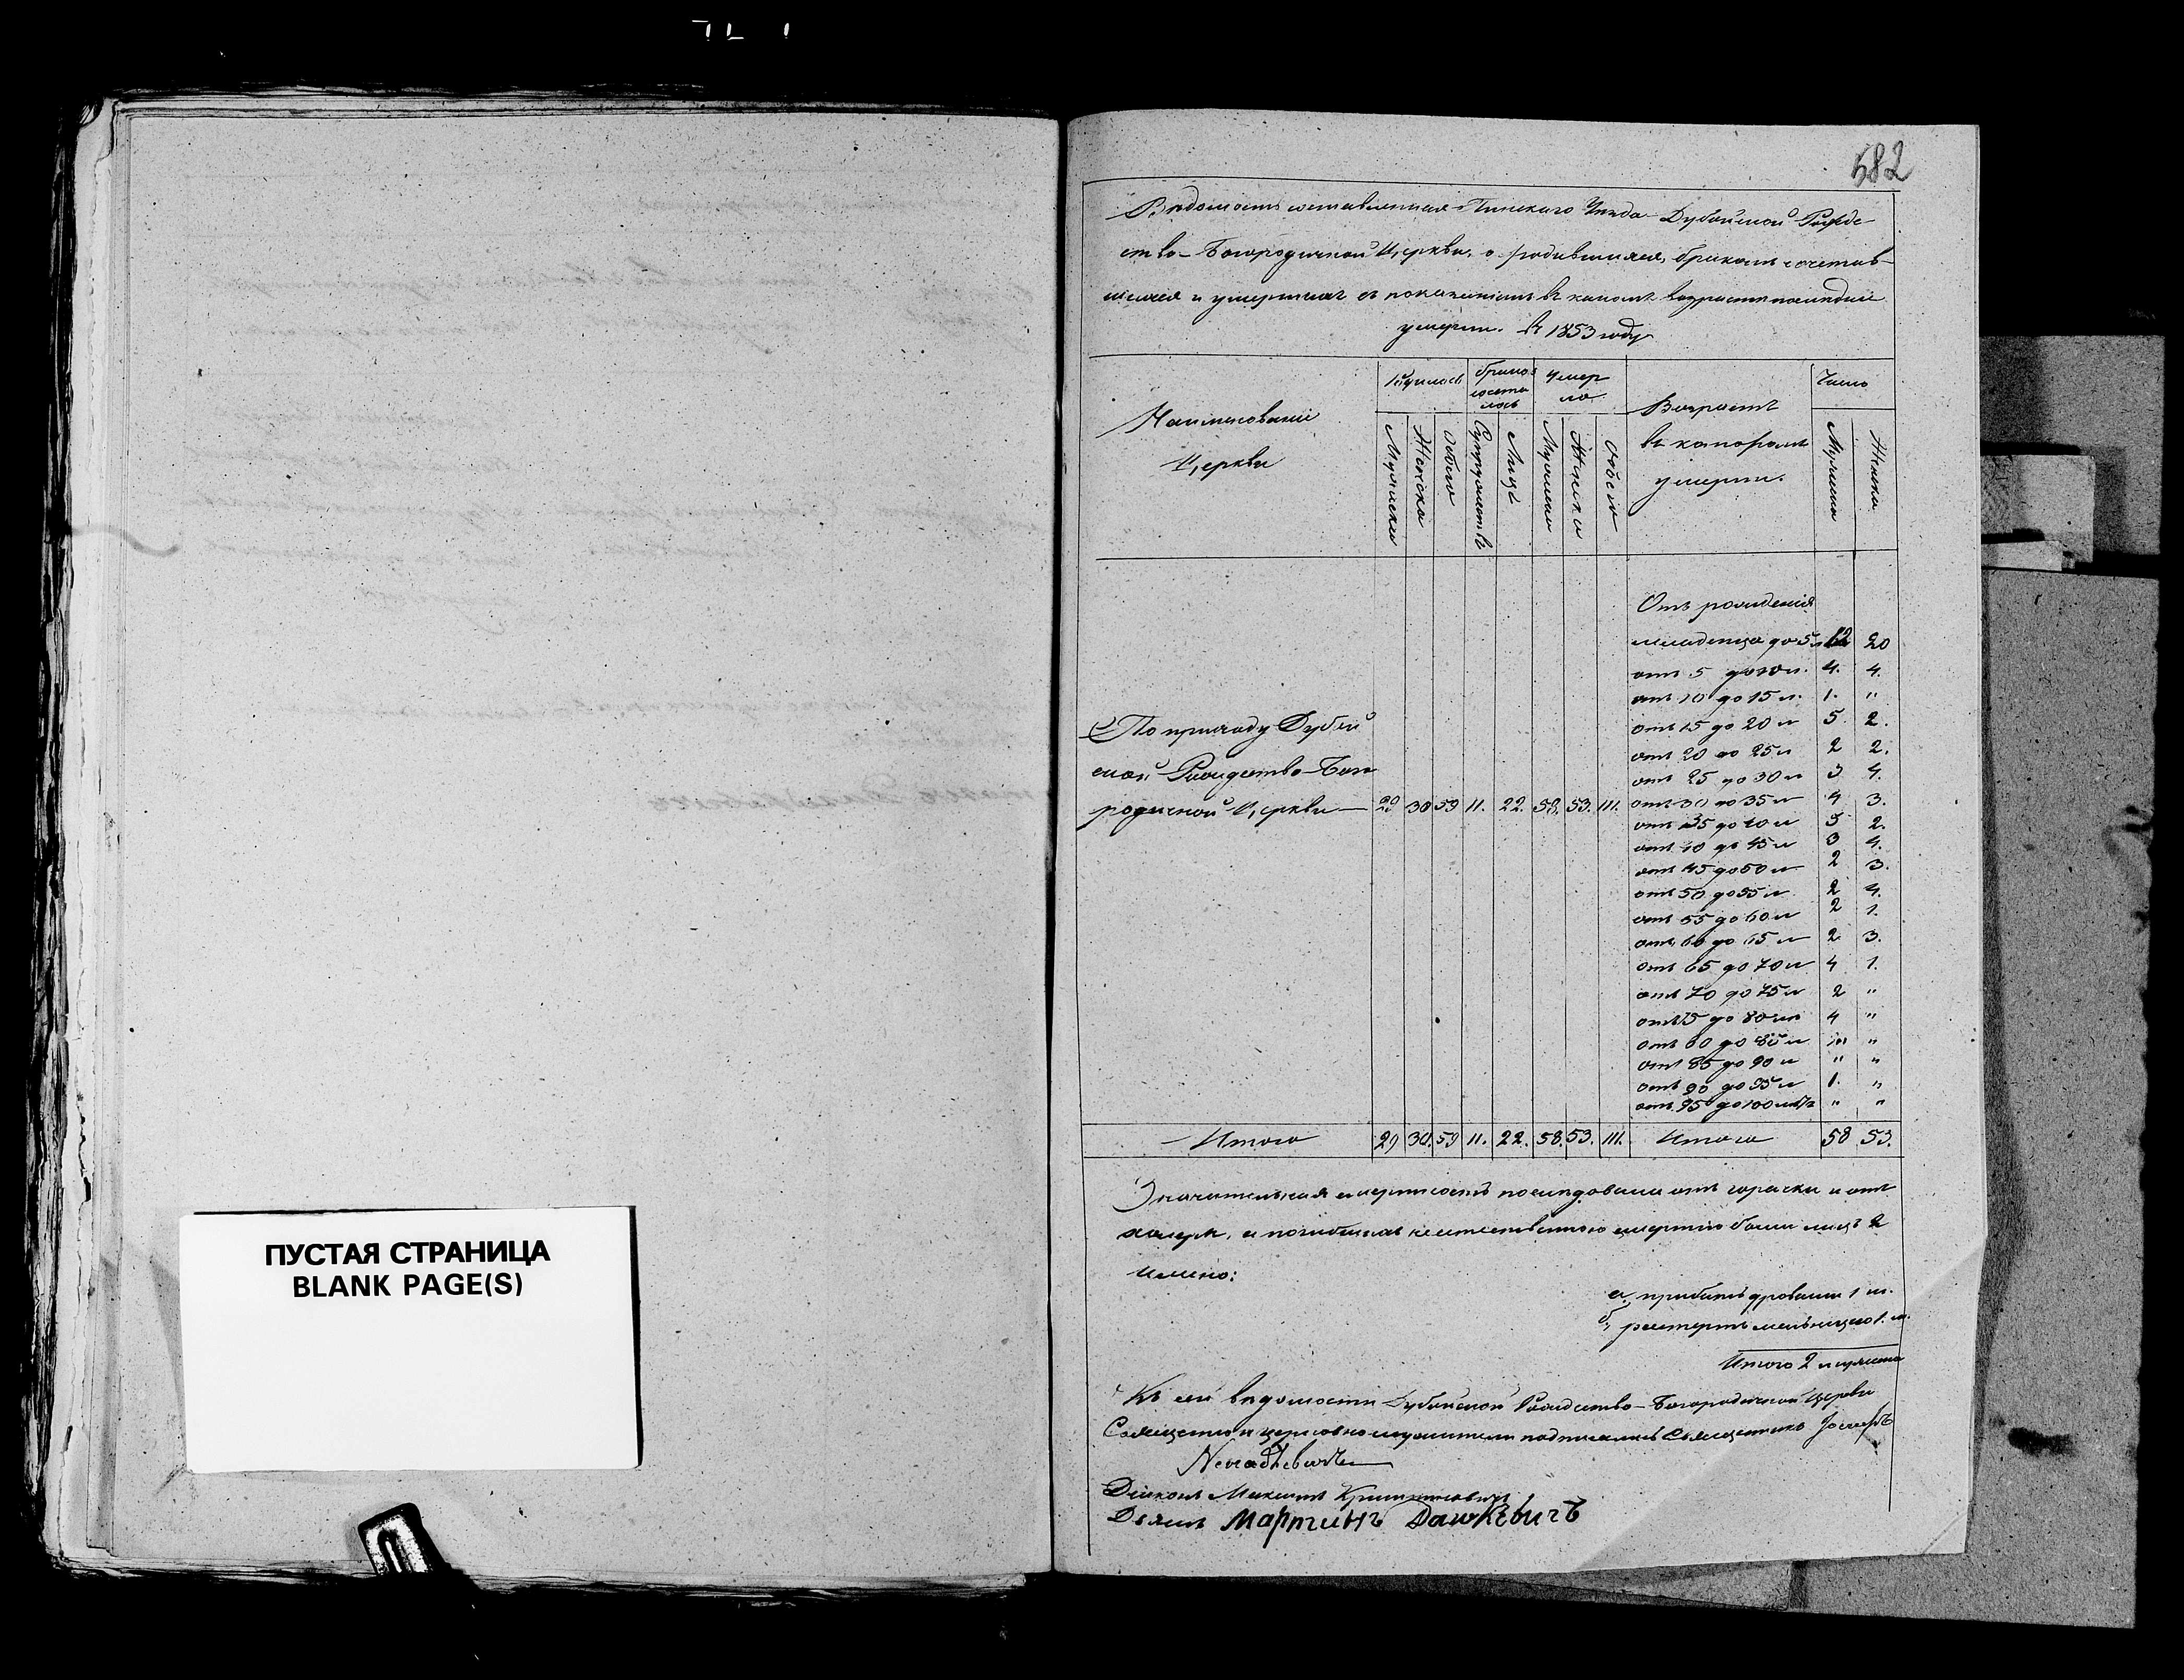 582
Вѣдомость составленная Пинскаго Уѣзда Дубойской Рожде-
ство-Богородичной Церкви, о родившихся, бракомъ сочетав-
шихся и умершихъ съ показаніемъ въ какомъ возрастѣ послѣдніе
умерли. въ 1853 году
Наименованіе Церкви
Родилось
Мужеска
Женска
Обоего
Бракосочеталось
Супружествъ
Лицъ
Умерло
Мужеска
Женска
Обоего
Возрастъ въ которомъ умерли.
Число
Мужеска
Женска
Отъ рожденія
младенца до 5 л 12 20
отъ 5 до 10 л. 4. 4.
отъ 10 до 15 л. 1. "
отъ 15 до 20 л 5 2.
отъ 20 до 25 л 2 2.
отъ 25 до 30 л 3 4.
отъ 30 до 35 л 4 3.
отъ 35 до 40 л 5 2.
отъ 40 до 45 л 3 4.
отъ 45 до 50 л 2 3.
отъ 50 до 55 л 2 4.
отъ 55 до 60 л 2 1.
отъ 60 до 65 л 2 3.
отъ 65 до 70 л 4 1.
отъ 70 до 75 л 2 "
отъ 75 до 80 л 4 "
отъ 80 до 85 л "
отъ 85 до 90 л " "
отъ 90 до 95 л 1. "
отъ 95 до 100 " "
По приходу Дубой
ской Рождество-Бого
родичной Церкви 29 30 59 11. 22. 58. 53. 111.
Итого 29 30. 59 11. 22. 58. 53. 111. Итого 58 53.
Значительная смертность послѣдовала отъ горячки и отъ
холеры, и погибшихъ неестественною смертію было лицъ 2
имено:
а, прибитъ дровами 1 м.
б, растертъ мельницею 1. м.
Итого 2 мужеска
Къ сей вѣдомости Дубойской Рождество-Богородичной Церкви
Священно и церковнослужители подписались Священникъ Іосифъ
Діаконъ Максимъ
Дьячекъ Мартинъ Дашкевичъ
ПУСТАЯ СТРАНИЦА
BLANK PAGE(S)